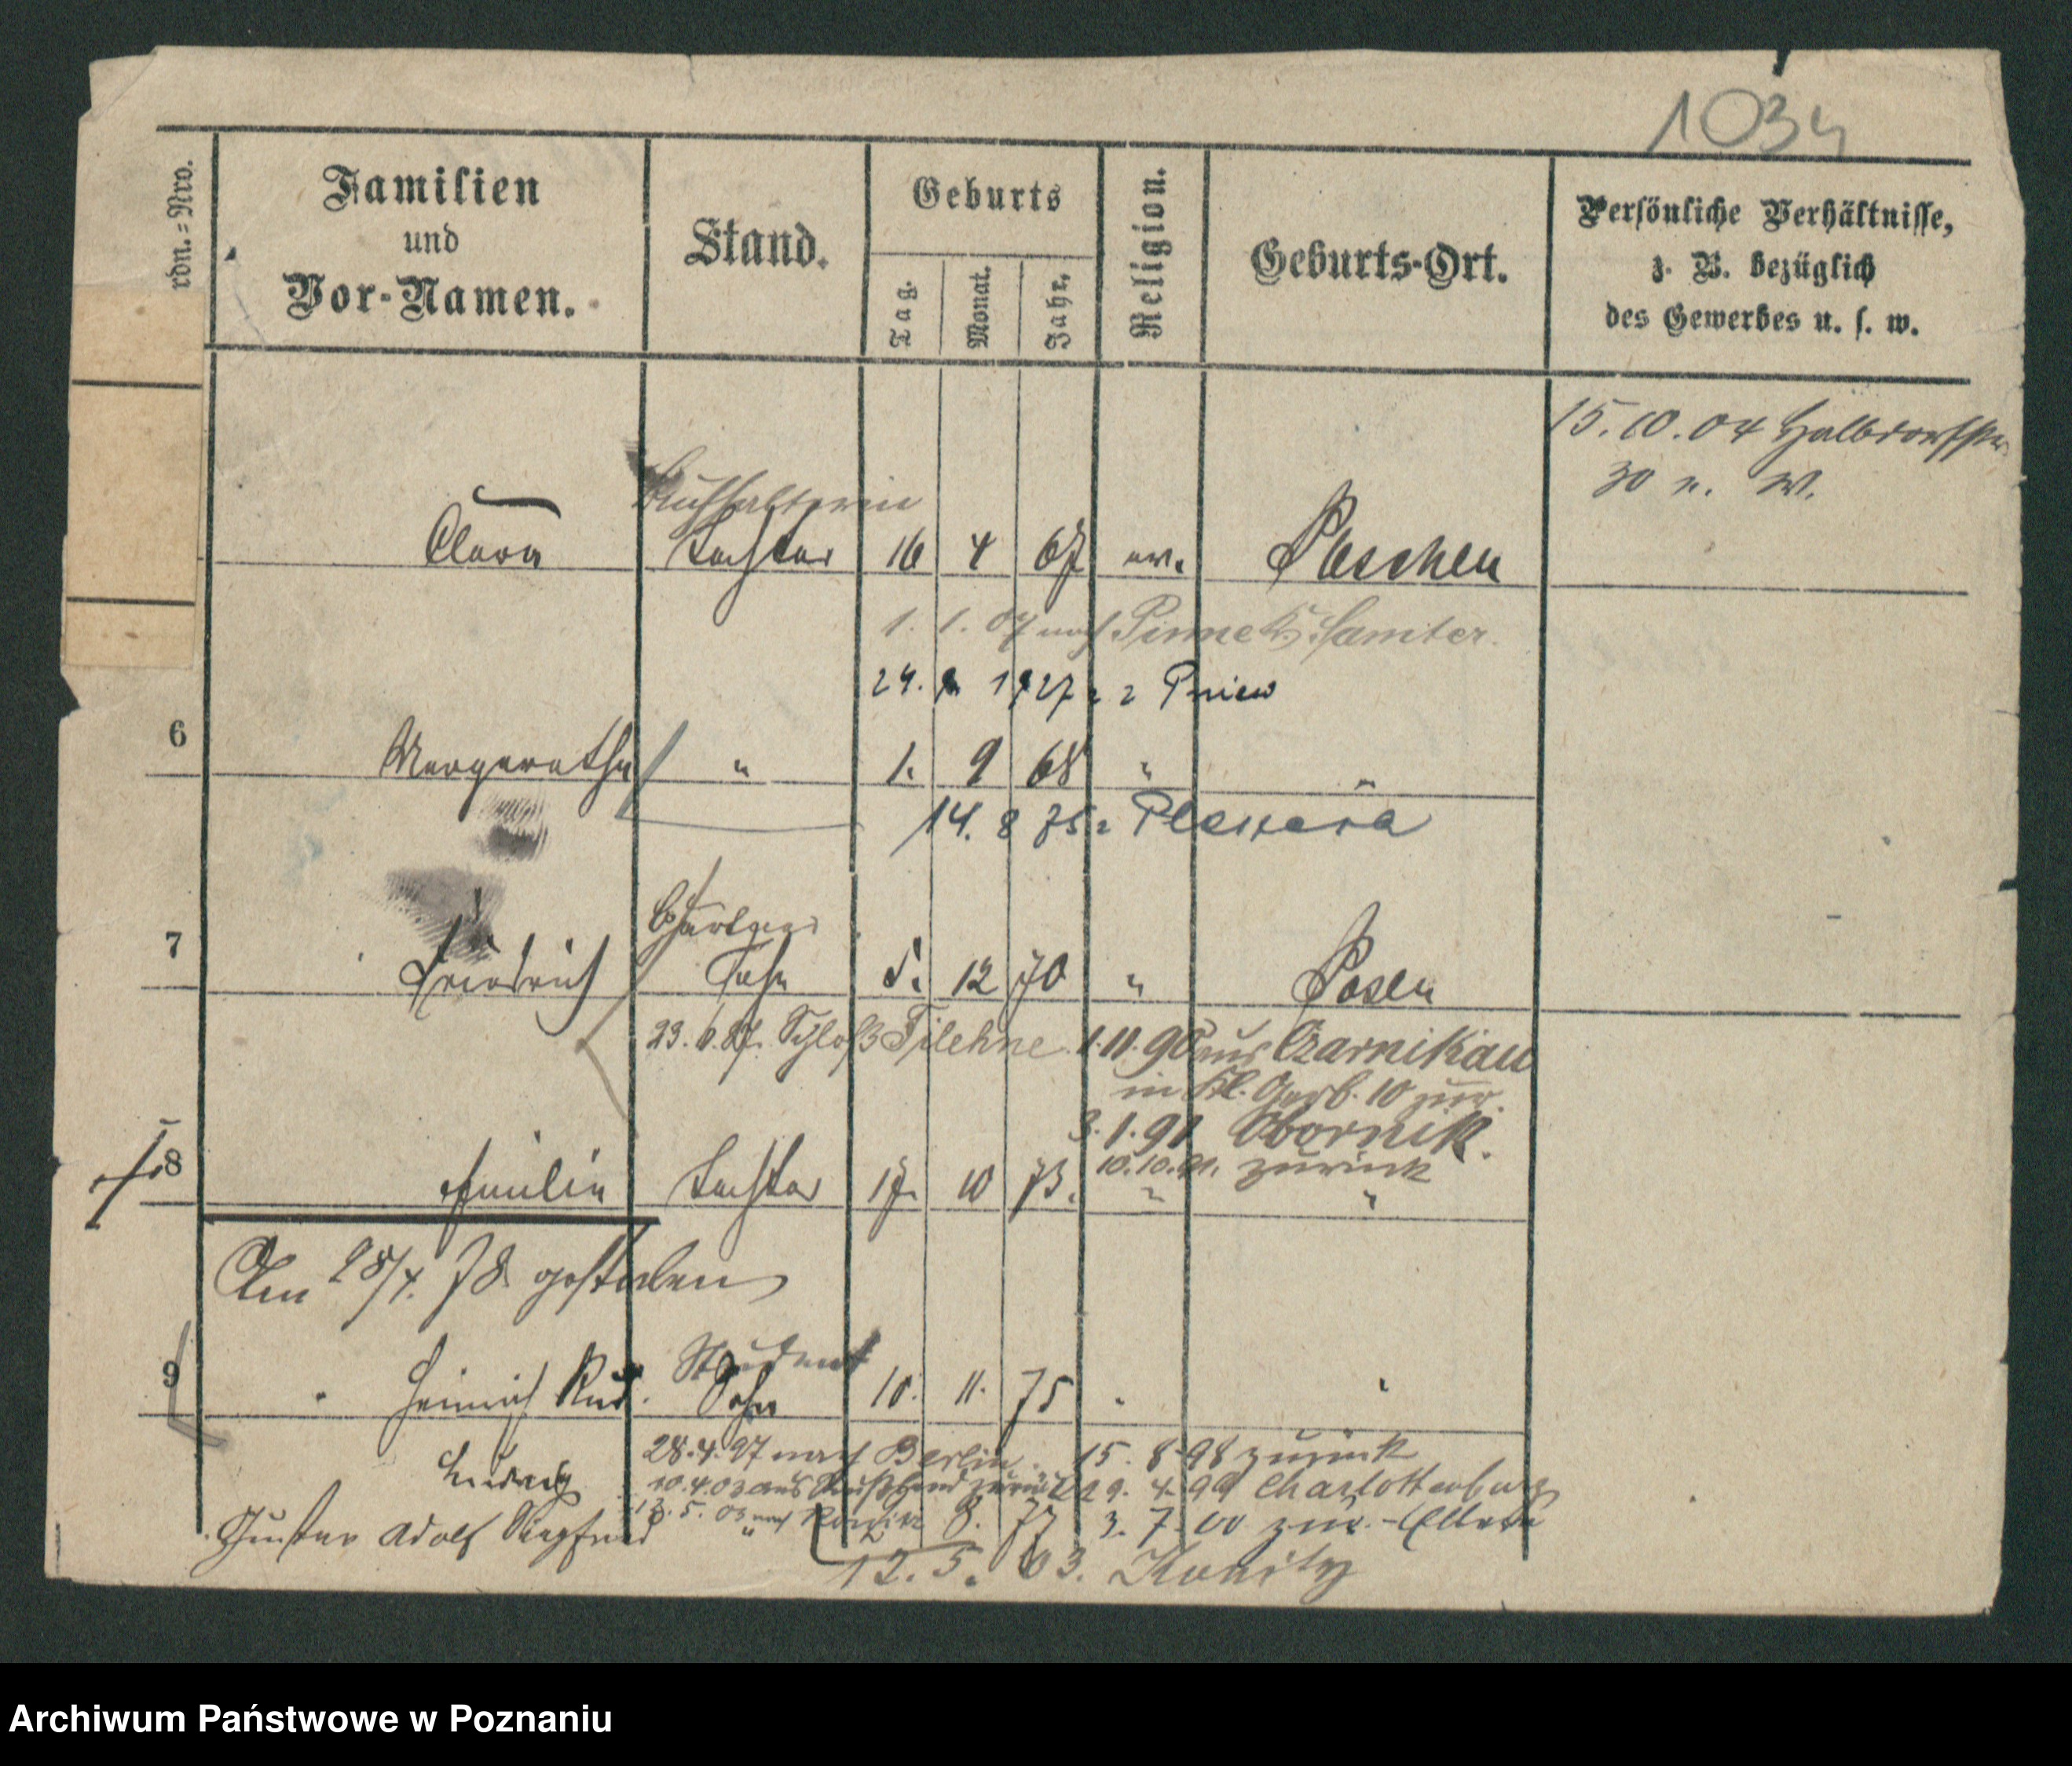 1034
rdn.=Nro.
Familien
und
Vor-Namen.
Stand.
Geburts
Tag.
Monat.
Jahr.
Religion.
Geburts-Ort.
Persönliche Verhältnisse,
z. B. bezüglich
des Gewerbes u. s. w.
15.10.04 Halbdorfstr
30 n. W.
Buchhalterin
Clara Tochter 16 4 67 ev. Pleschen
1. 1. 07 nach Pinne Kr. Samter.
24. 1927 z Pniew
6
Margarethe " 1. 9 68 "
14. 8 75 z Pleszewa
7
Friedrich Sohn 5. 12 70 " Posen
23.6.87. Schloß Filehne 1.11.90 aus Czarnikau
in Kl. Gerb. 10 zur.
3.1.91 Obornik.
10.10.91. zurück
8
Emilie Tochter 17. 10 73. " "
Am 28/4. 78 gestorben
Student
9
Heinrich Rud. Sohn 10. 11. 75 " "
28.4.97 nach Berlin. 15. 8 98 zurück
Ludwig
10.4.03 aus Rußland zurück 29. 4. 99 Charlottenburg
13. 5. 03 nach Konitz 3. 7. 00 zur.
Gustav Adolf Siegfried " 8. 77
12. 5. 03. Konitz
Archiwum Państwowe w Poznaniu